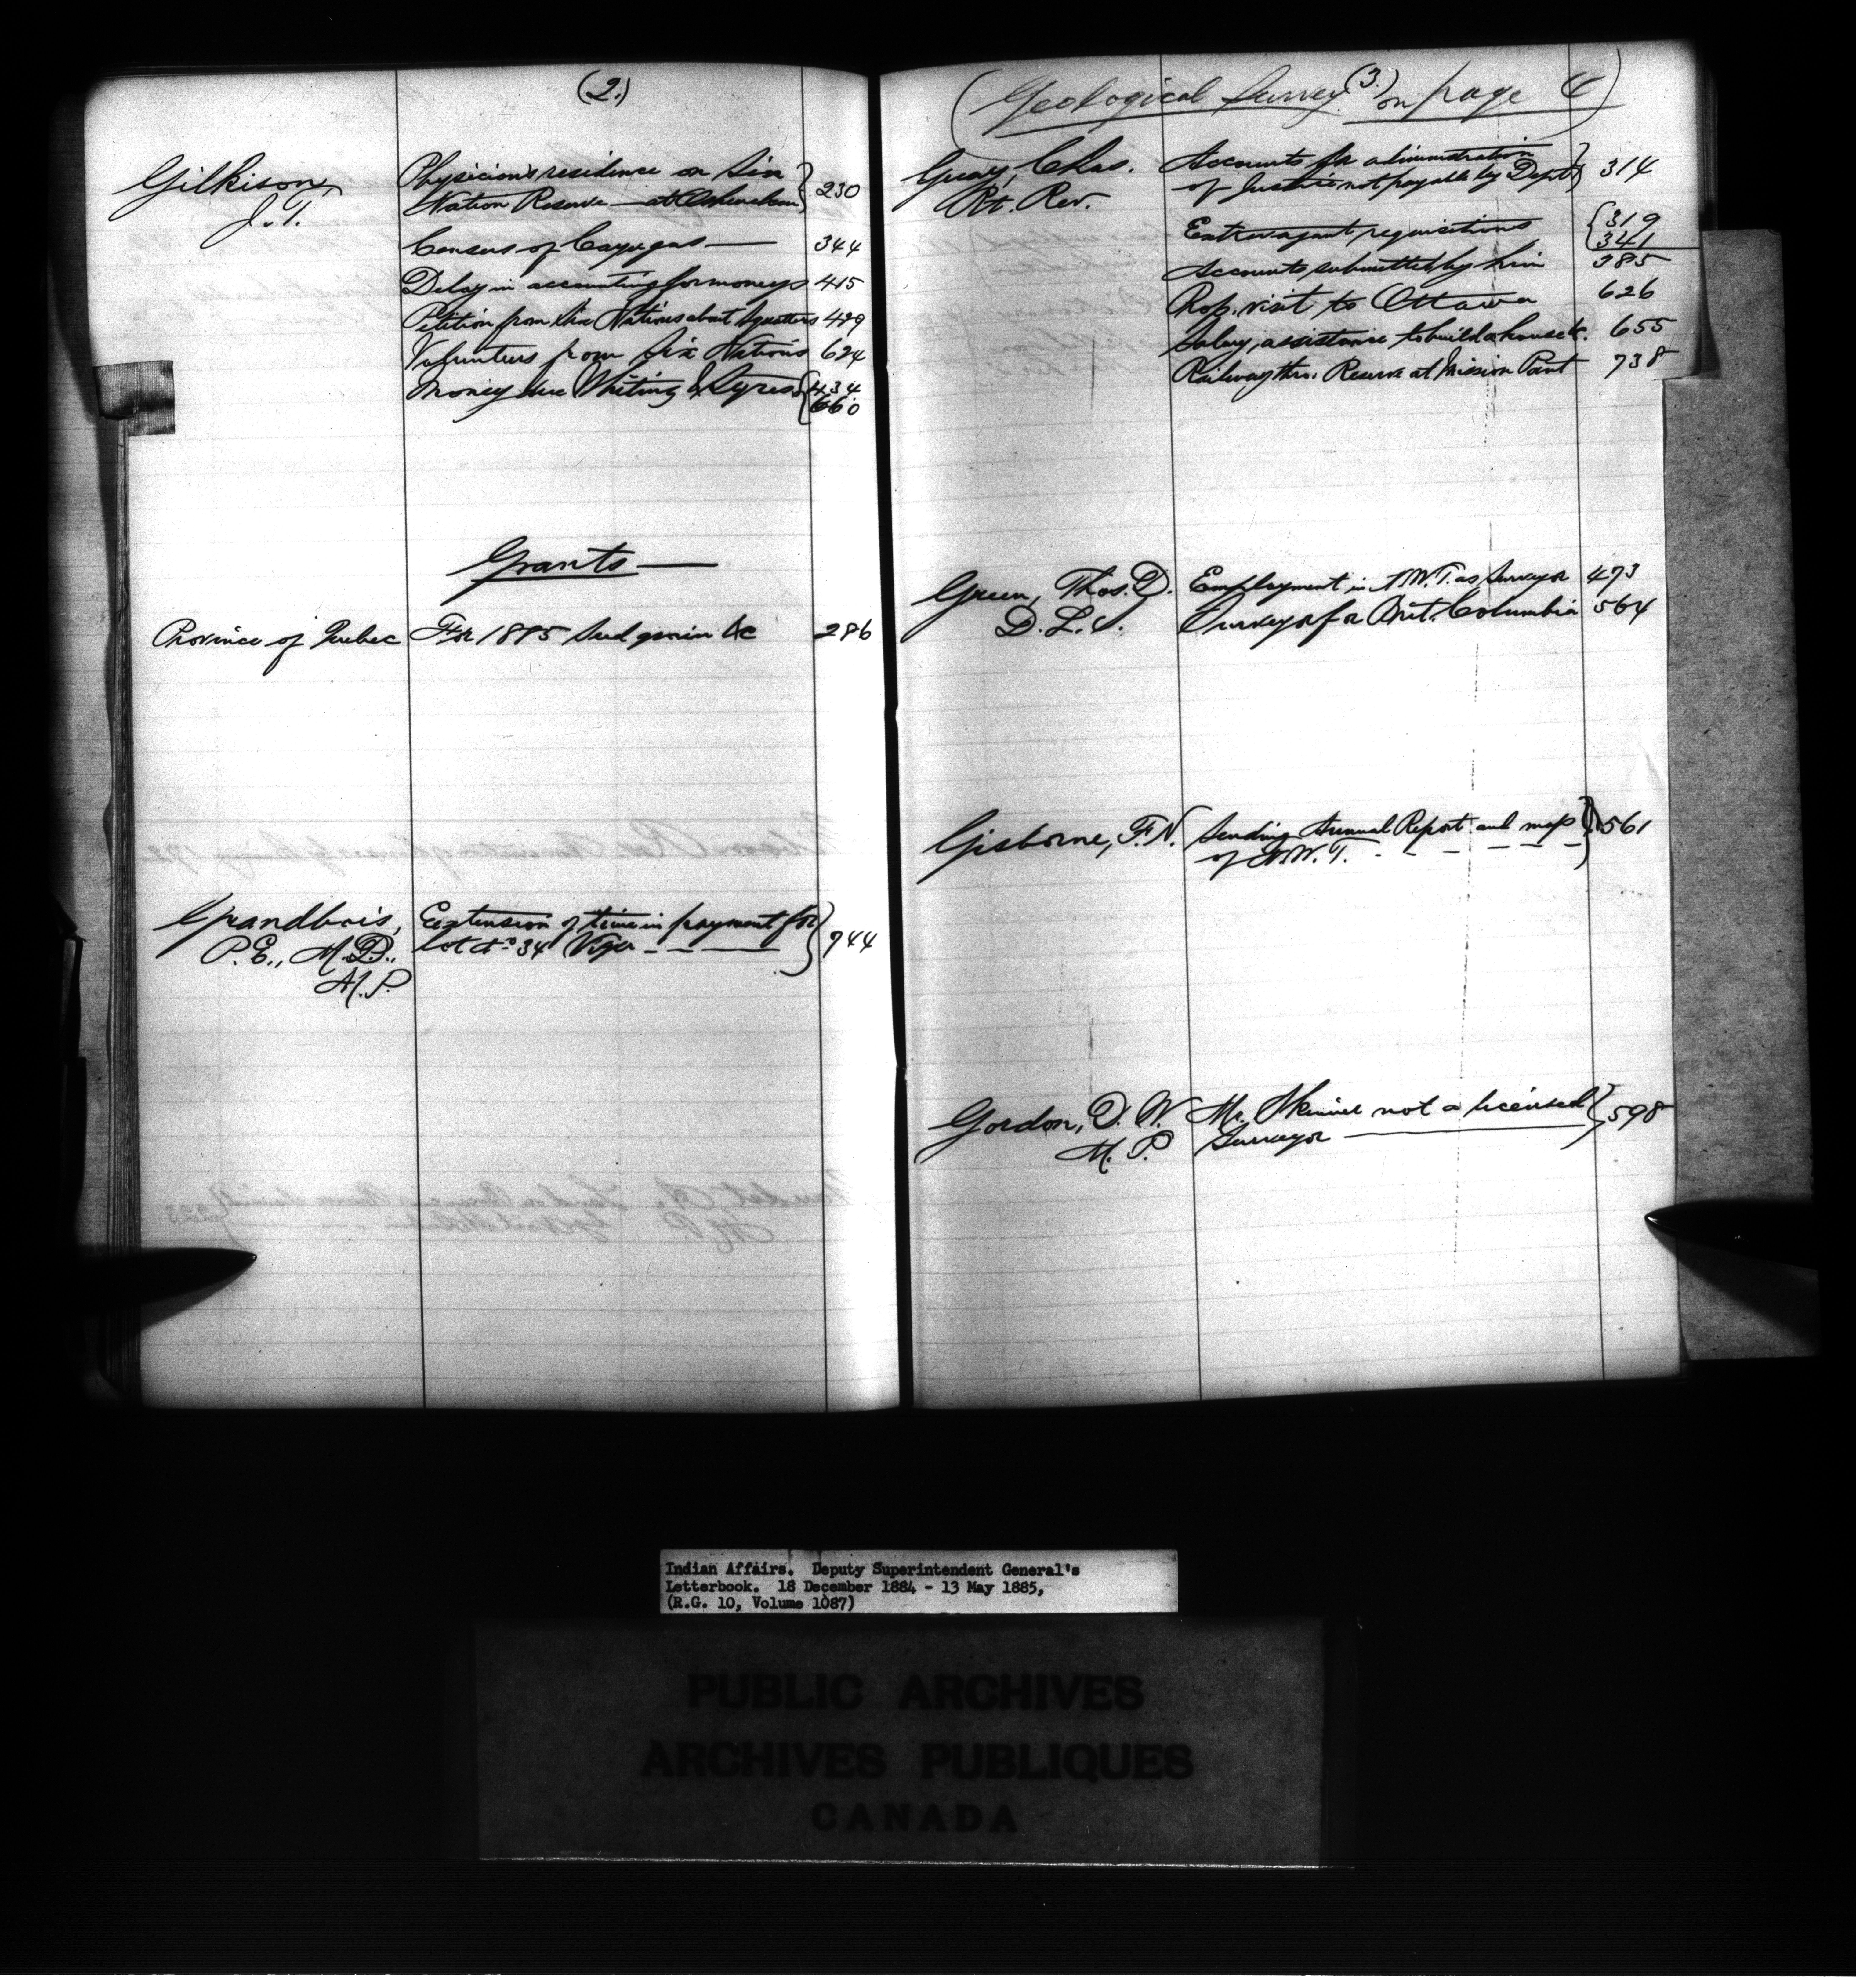 (2.)
Gilkison,
J. T.
Physician's residence on Six
Nation Reserve — at Ohsweken } 230
Census of Cayugas — 344
Delay in accounting for moneys 415
Petition from Six Nations about Squatters 429
Volunteers from Six Nations 624
Money due Whiting & Styres { 434
660
Grants —
Province of Quebec For 1885 Seed grain &c 286
Grandbois, Extension of time in payment for
P. E., M.D., Lot No 34 Viger — — } 744
M. P.
(3.)
(Geological Survey on page 4)
Guay, Chas. Accounts for administration
Rt. Rev. of Justice not payable by Dept } 314
Extravagant requisitions { 319
341
Accounts submitted by him 385
Prop. visit to Ottawa 626
Salary, assistance to build a house &c. 655
Railway thro. Reserve at Mission Point 738
Green, Thos. D. Employment in N.W.T. as Surveyor 473
D. L. S. Surveyor for Brit. Columbia 564
Gisborne, F. N. Sending Annual Report and map
of N.W.T. - - - - - - } 561
Gordon, D. W. Mr. Skinner not a licensed
M. P. Surveyor — } 598
Indian Affairs. Deputy Superintendent General's
Letterbook. 18 December 1884 - 13 May 1885,
(R.G. 10, Volume 1087)
PUBLIC ARCHIVES
ARCHIVES PUBLIQUES
CANADA